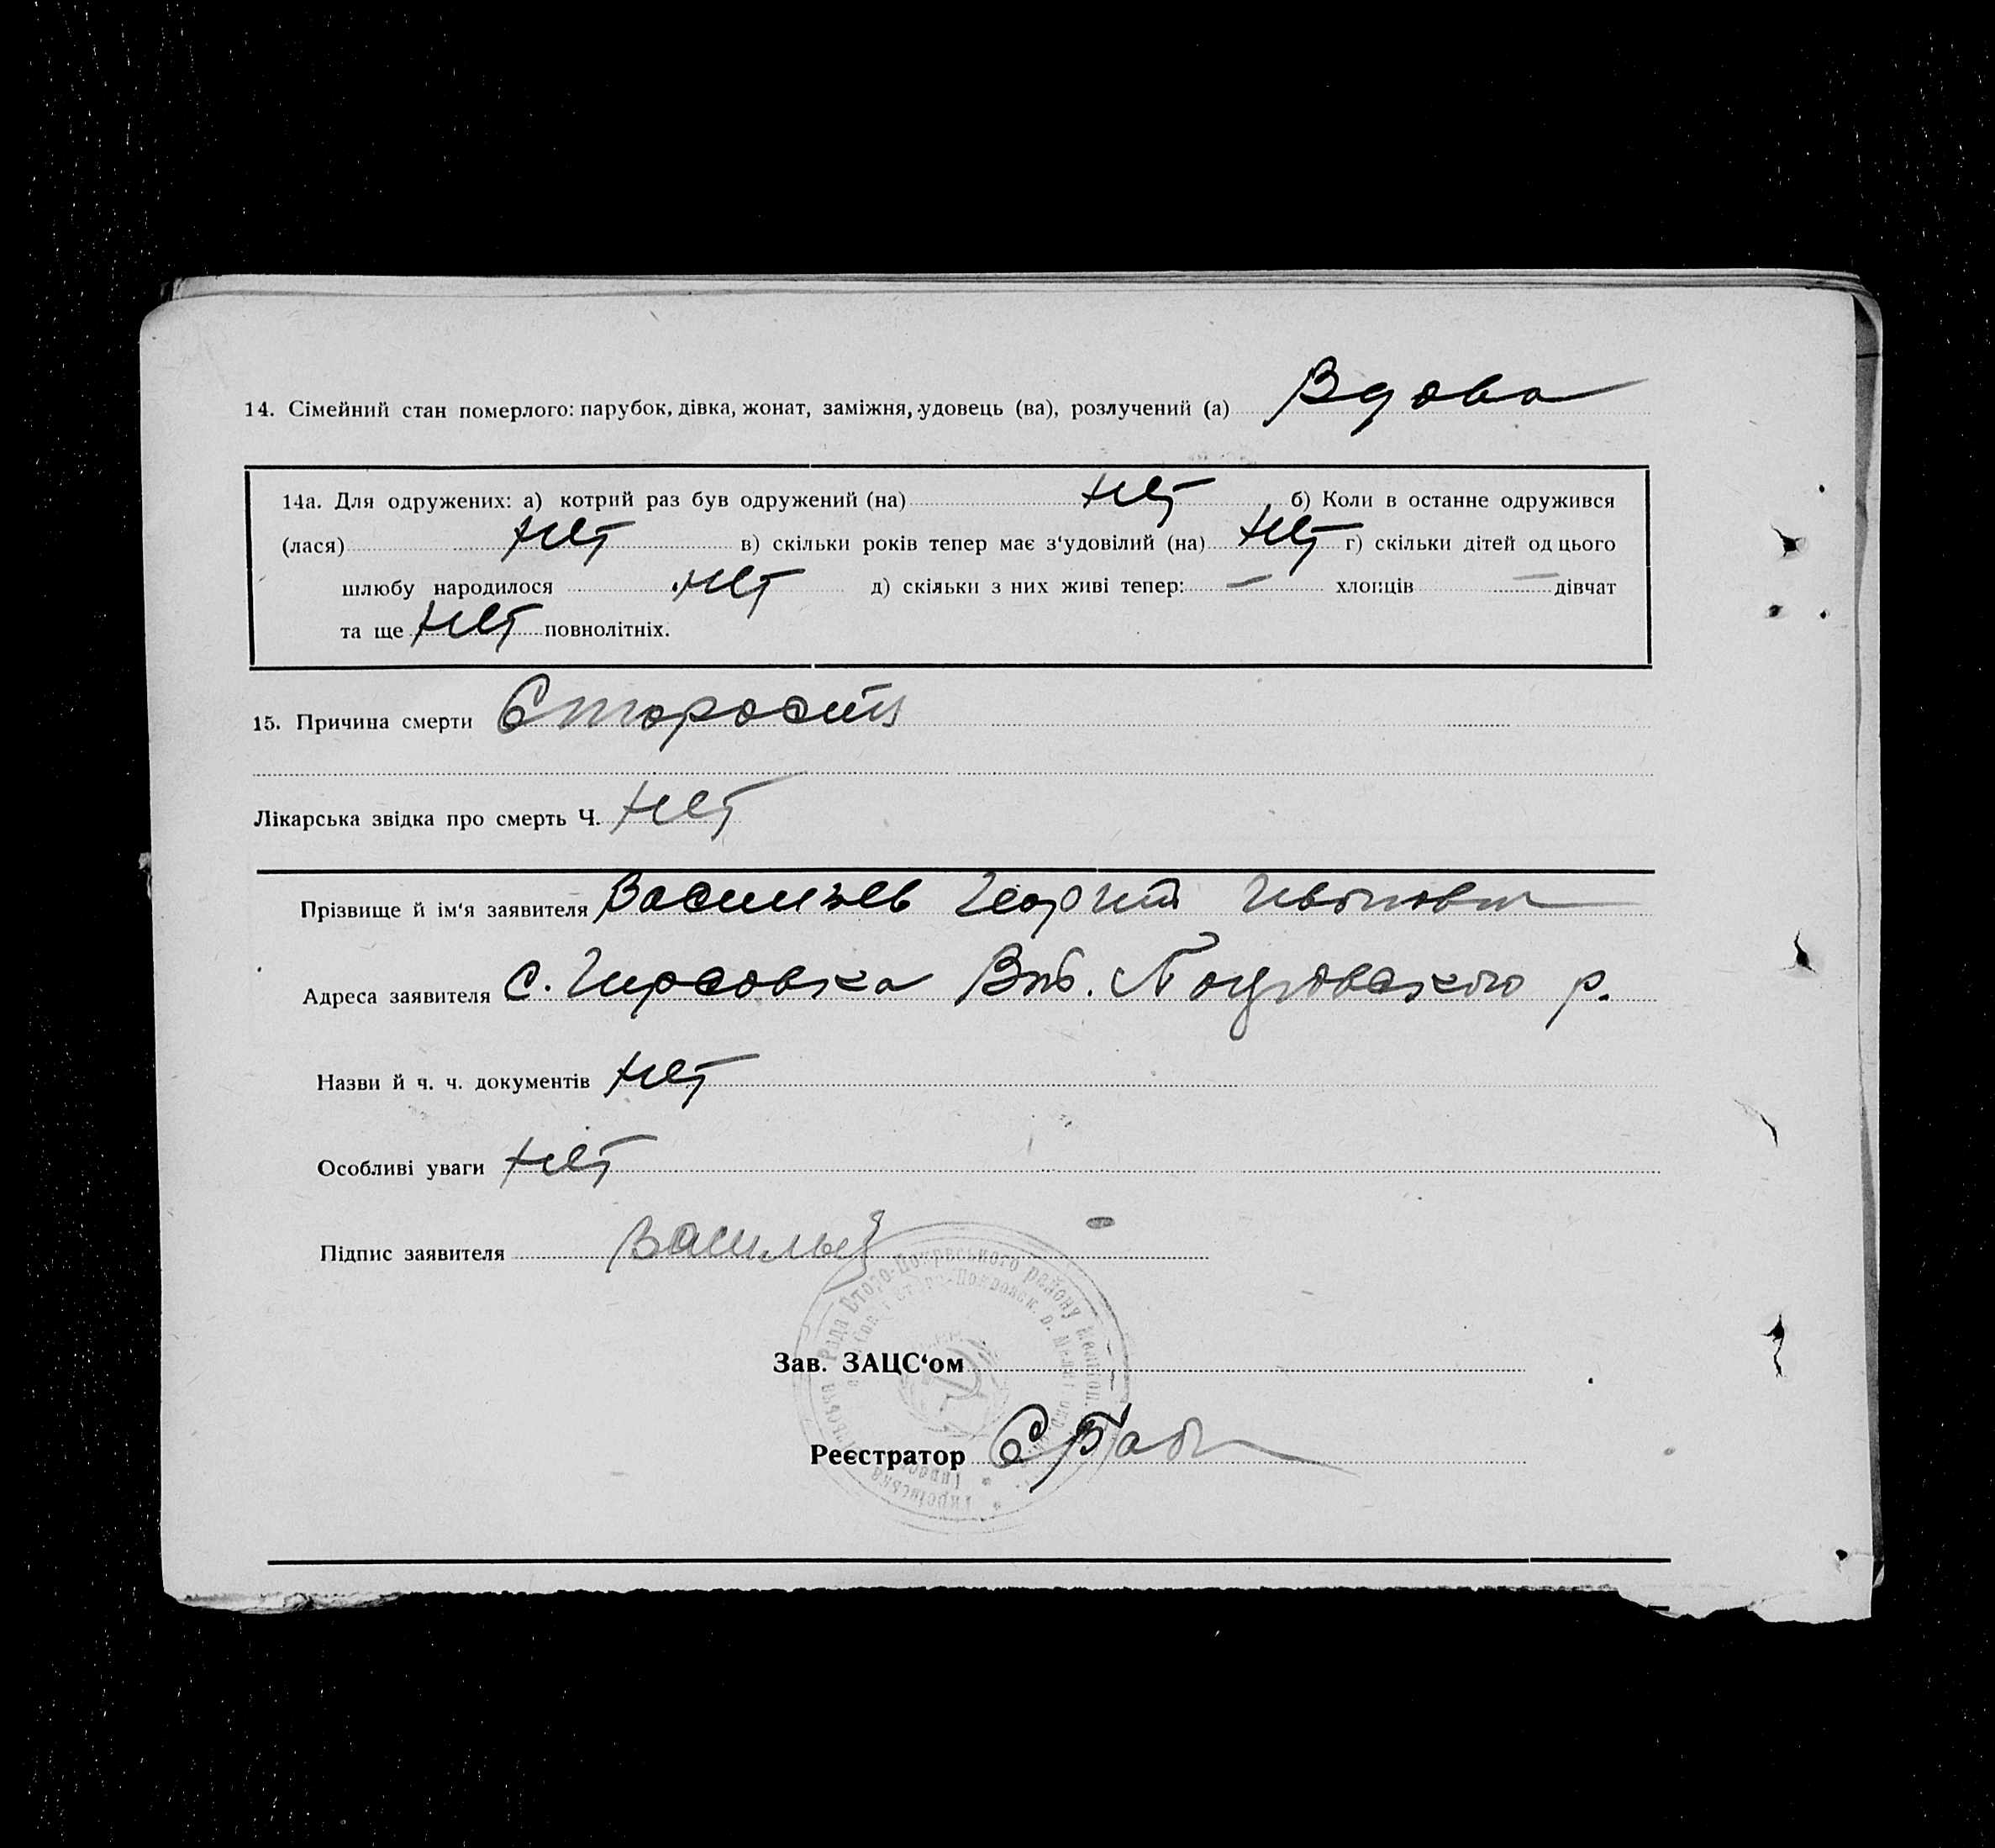 14. Сімейний стан померлого: парубок, дівка, жонат, заміжня, удовець (ва), розлучений (а) Вдова
14а. Для одружених: а) котрий раз був одружений (на) нет б) Коли в останне одружився
(лася) нет в) скільки років тепер має з‘удовілий (на) нет г) скільки дітей од цього
шлюбу народилося нет д) скільки з них живі тепер: — хлопців — дівчат
та ще нет повнолітніх.
15. Причина смерти Старость
Лікарська звідка про смерть Ч. нет
Прізвище й ім‘я заявителя Васильев Георгий Иванович
Адреса заявителя с. Гирсовка Вт. Покровского р.
Назви й ч. ч. документів нет
Особливі уваги нет
Підпис заявителя Васильев
Рада Второ-Покровського району
Зав. ЗАЦС‘ом
Реєстратор